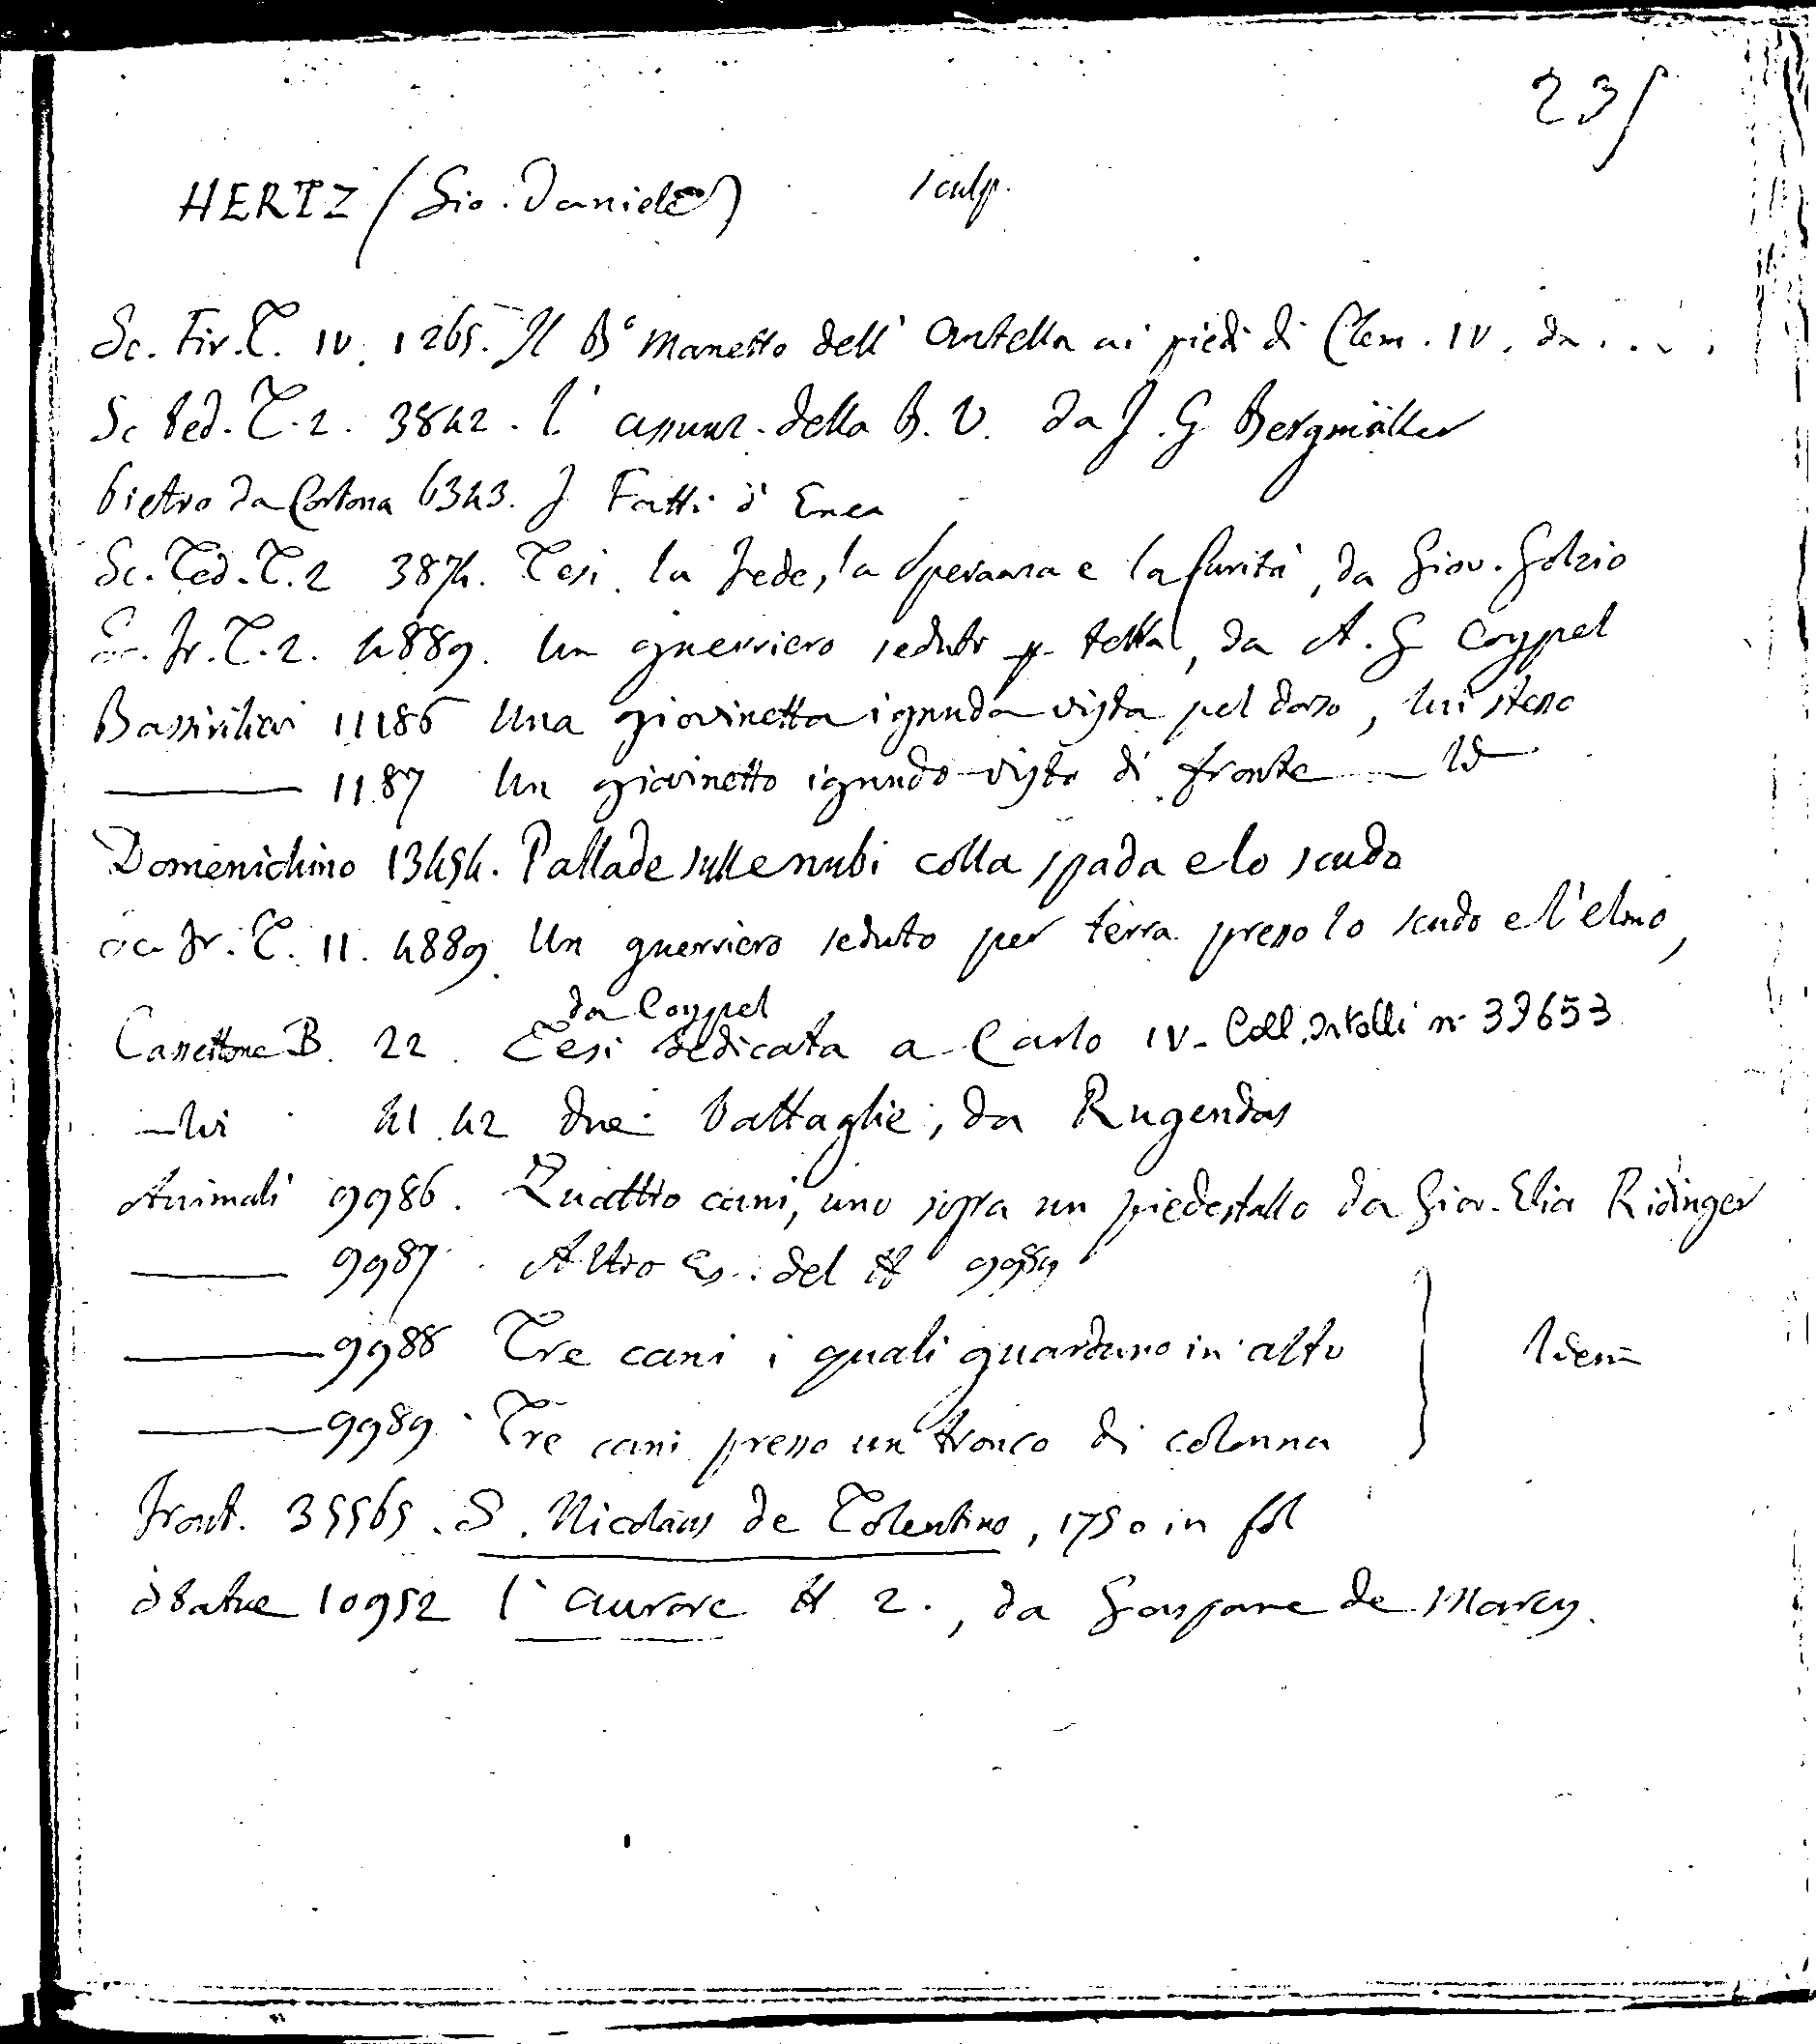 235
HERTZ (Gio. Daniele) sculp.
Sc. Fir. T. IV. 1265. Il B° Manetto dell' Antella ai piedi di Clem. IV. da . . . .
Sc Ted. T. 2. 3842. L' assunz. della B. V. da J. G Bergmüller
Pietro da Cortona 6343. I Fatti d' Enea
Sc. Ted. T. 2 3874. Tesi. la Fede, la Speranza e la Carità, da Giov. Golzio
Sc. Fr. T. 2. 4889. Un guerriero seduto p. terra, da A. G Coypel
Bassirilievi 11186 Una giovinetta ignuda vista pel dorso, lui stesso
——— 11.87 Un giovinetto ignudo visto di fronte — Id
Domenichino 13454. Pallade sulle nubi colla spada e lo scudo
Sc Fr. T. II. 4889. Un guerriero seduto per terra presso lo scudo e l'elmo,
da Coypel
Cassettone B. 22. Tesi dedicata a Carlo IV. Coll. n° 39653
— 41. 42 due battaglie, da Rugendas
Animali 9986. Quattro cani, uno sopra un piedestallo da Giov. Elia Ridinger
——— 9987. Altro Es. del N
——— 9988 Tre cani i quali guardano in alto } Idem
——— 9989. Tre cani presso un tronco di colonna
Front. 35565. S. Nicolaus de Tolentino, 1750 in fol
Statue 10952 L' aurore N 2., da Gaspare de Marcy.